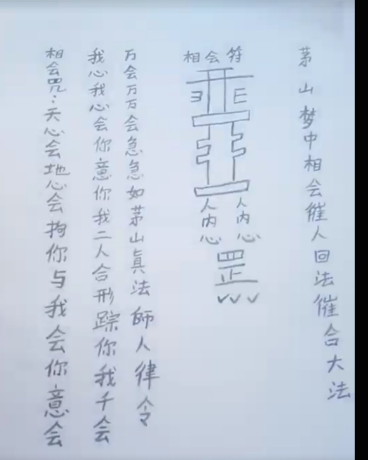 茅山梦中相会催人回法催合大法
相会符
人内心
人内心
罡
相会咒:天心会地心会拘你与我会你意会
我心我心会你意你我二人合形踪你我千会
万会万万会急急如茅山眞法師人律令